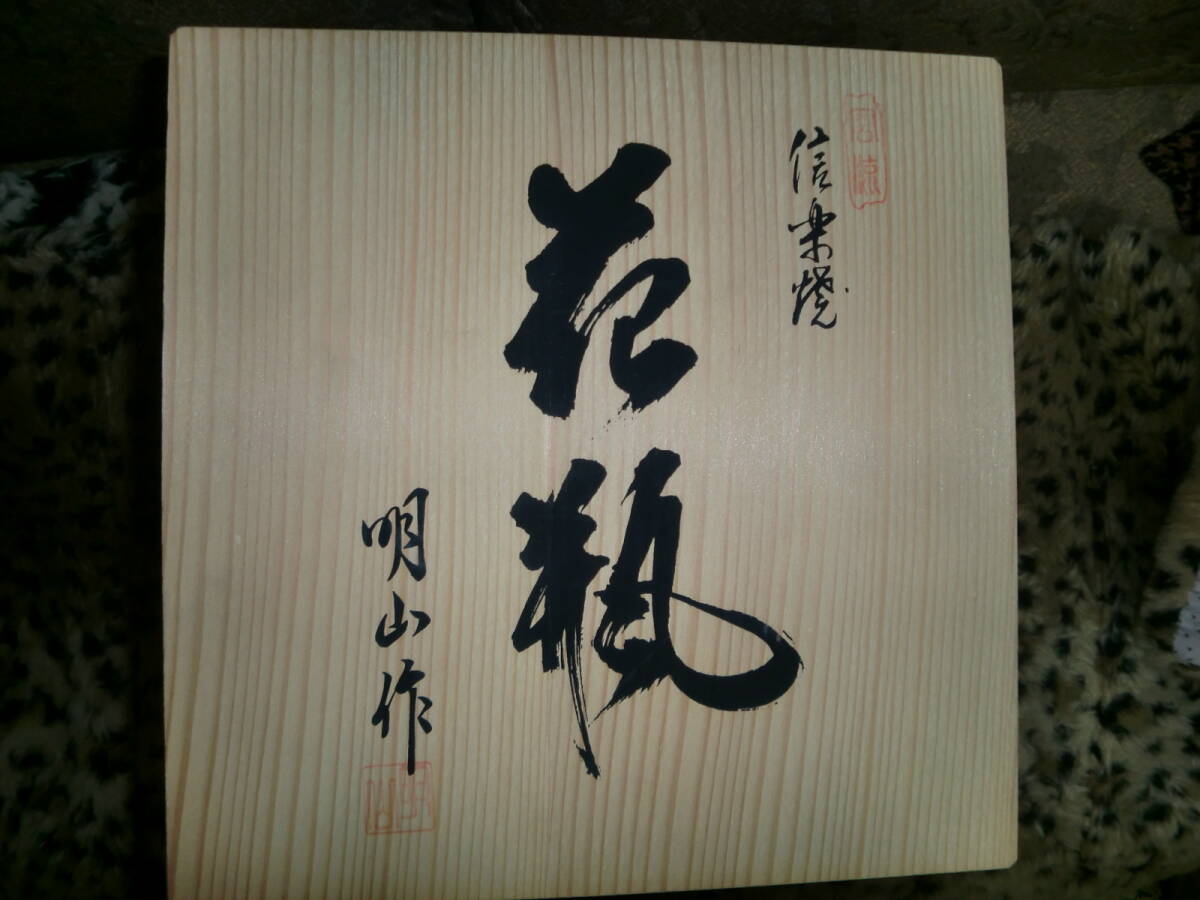 信楽焼
花瓶
明山作